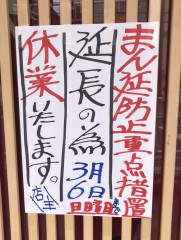 まん延防止重点措置
延長の為
3月
6日
日曜日まで
休業いたします。
店主